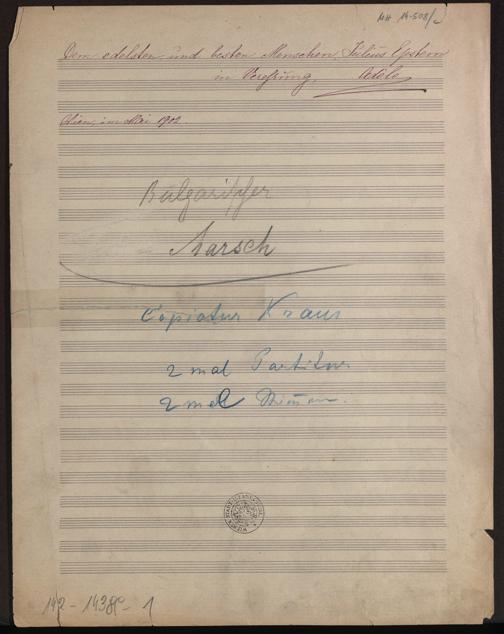 MH 14-508/c
Dem edelsten und besten Menschen, Julius Epstein
in Verehrung Adele
Wien, im Mai 1902.
Bulgarischer
Marsch
Copiatur Kraus
2 mal Partitur
2 mal Stimmen.
142-1438c-1